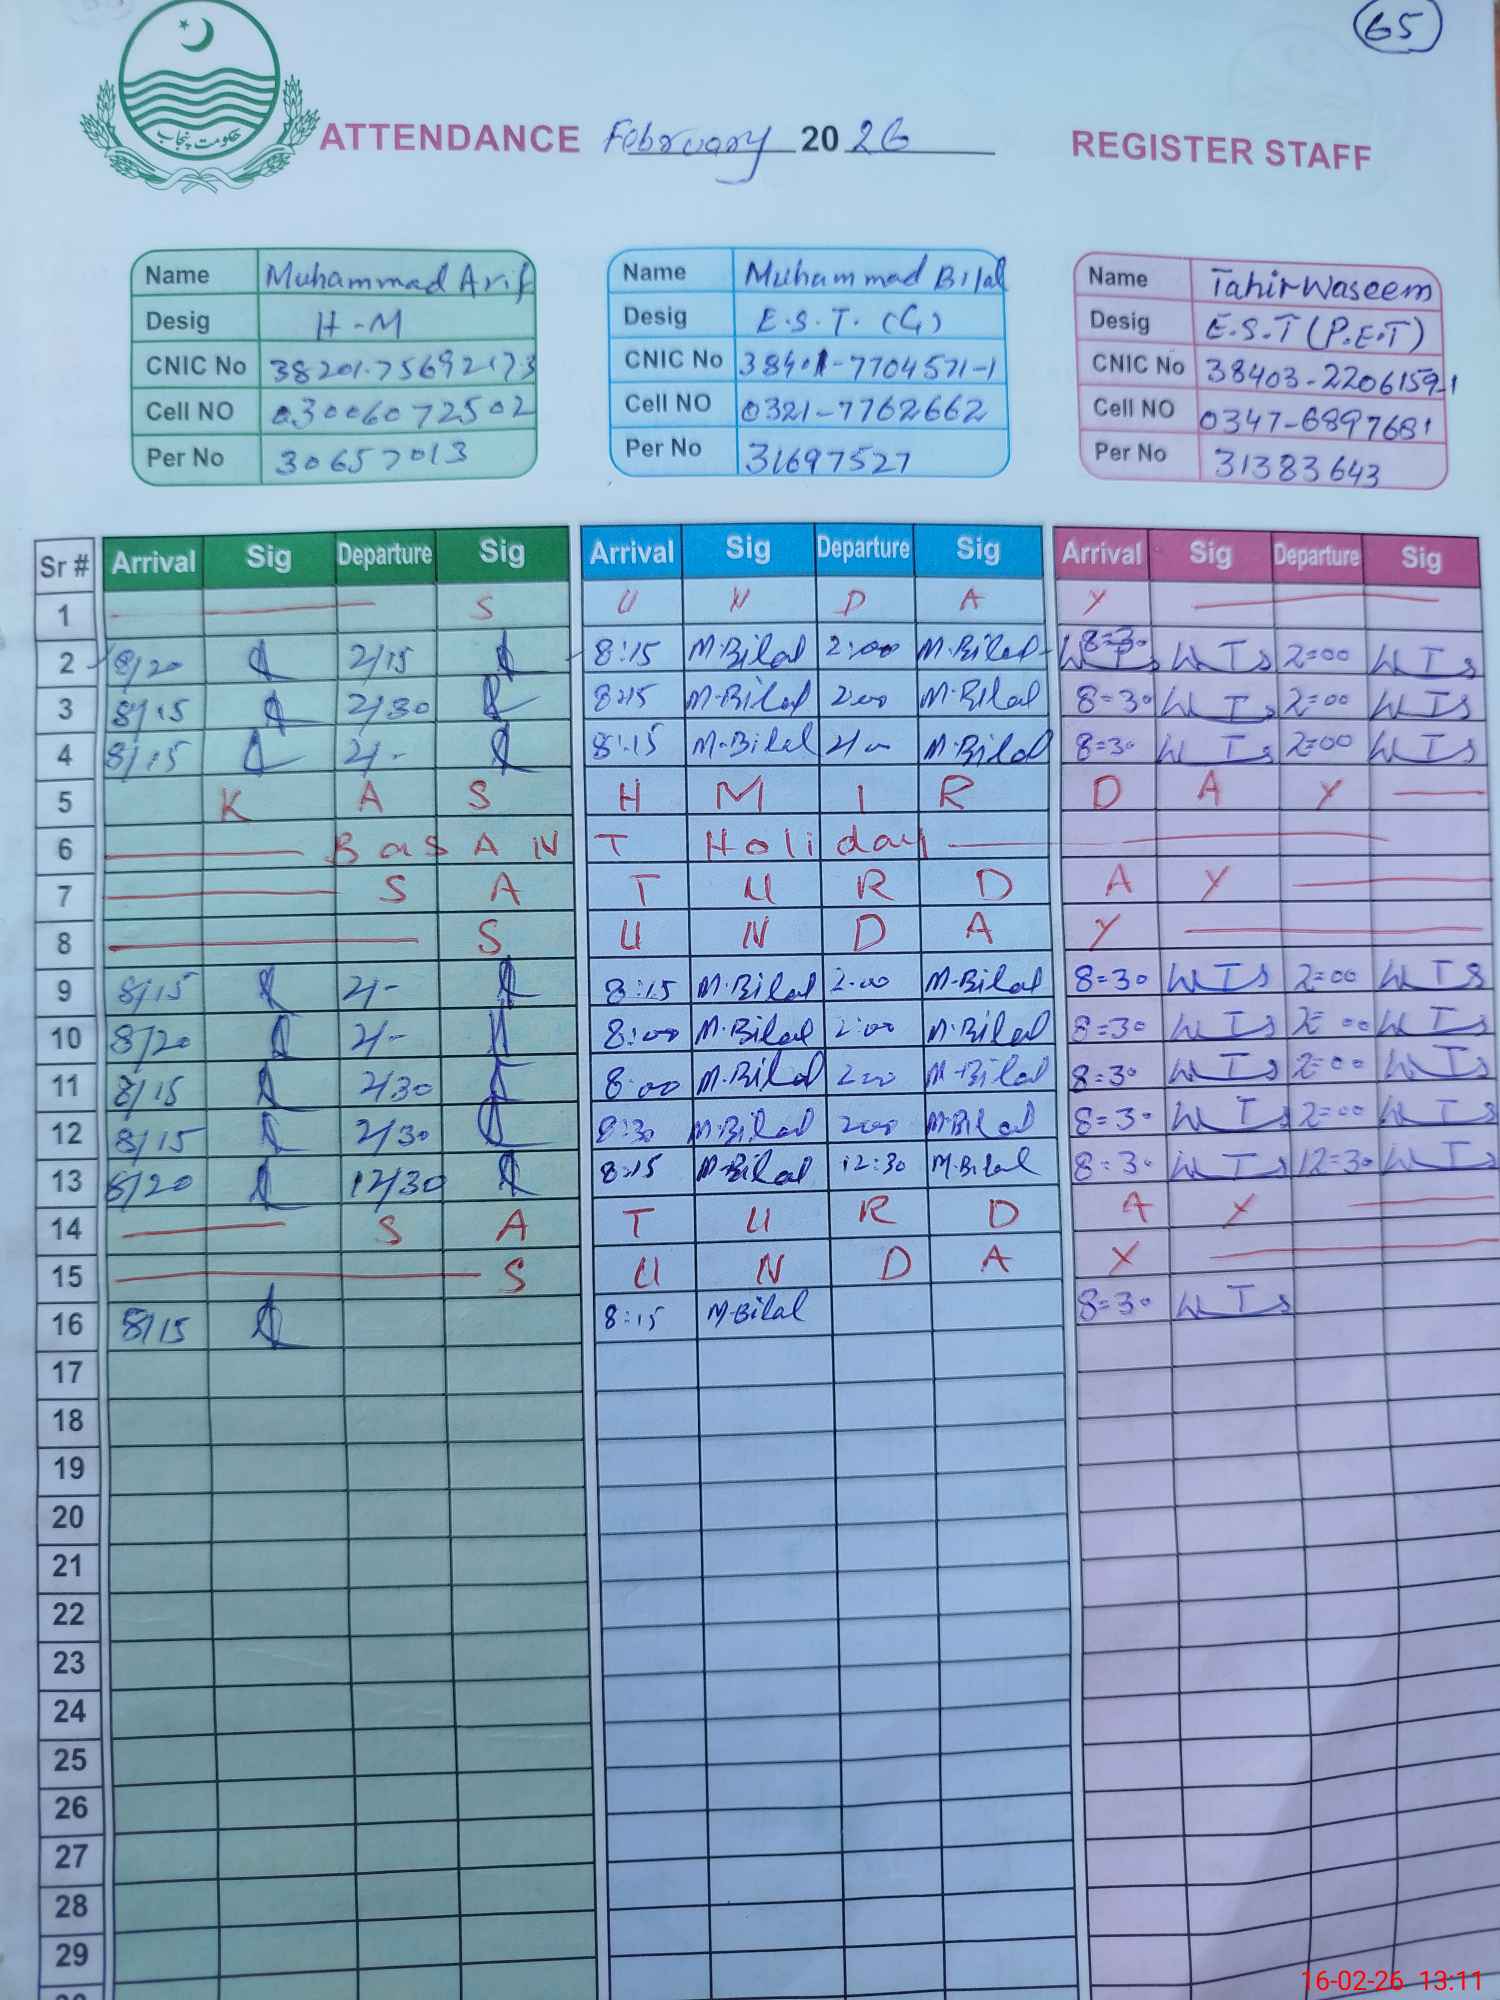 65
حکومت پنجاب
ATTENDANCE February 2026 REGISTER STAFF
Name Muhammad Arif Name Muhammad Bilal Name Tahir Waseem
Desig H-M Desig E.S.T. (G) Desig E.S.T (P.E.T)
CNIC No CNIC No 38401-7704571-1 CNIC No 38403-2206159-1
Cell NO 03006072502 Cell NO 0321-7762662 Cell NO 0347-6897681
Per No 30657013 Per No 31697527 Per No 31383643
Sr # Arrival Sig Departure Sig Arrival Sig Departure Sig Arrival Sig Departure Sig
1 S U N D A Y
2 8/20 2/15 8:15 M.Bilal 2:00 M.Bilal 8=30 W T s 2=00 W T s
3 8/15 2/30 8:15 M.Bilal 2:00 M.Bilal 8=30 W T s 2=00 W T s
4 8/15 2/- 8:15 M.Bilal 2/00 M.Bilal 8=30 W T s 2=00 W T s
5 K A S H M I R D A Y
6 B a s A N T Holiday
7 S A T U R D A Y
8 S U N D A Y
9 8/15 2/- 8:15 M.Bilal 2:00 M.Bilal 8=30 W T s 2=00 W T s
10 8/20 2/- 8:00 M.Bilal 2:00 M.Bilal 8=30 W T s 2=00 W T s
11 8/15 2/30 8:00 M.Bilal 2:00 M.Bilal 8=30 W T s 2=00 W T s
12 8/15 2/30 8:30 M.Bilal 2:00 M.Bilal 8=30 W T s 2=00 W T s
13 8/20 12/30 8:15 M.Bilal 12:30 M.Bilal 8=30 W T s 12=30 W T s
14 S A T U R D A Y
15 S U N D A Y
16 8/15 8:15 M.Bilal 8=30 W T s
17
18
19
20
21
22
23
24
25
26
27
28
29
16-02-26 13:11